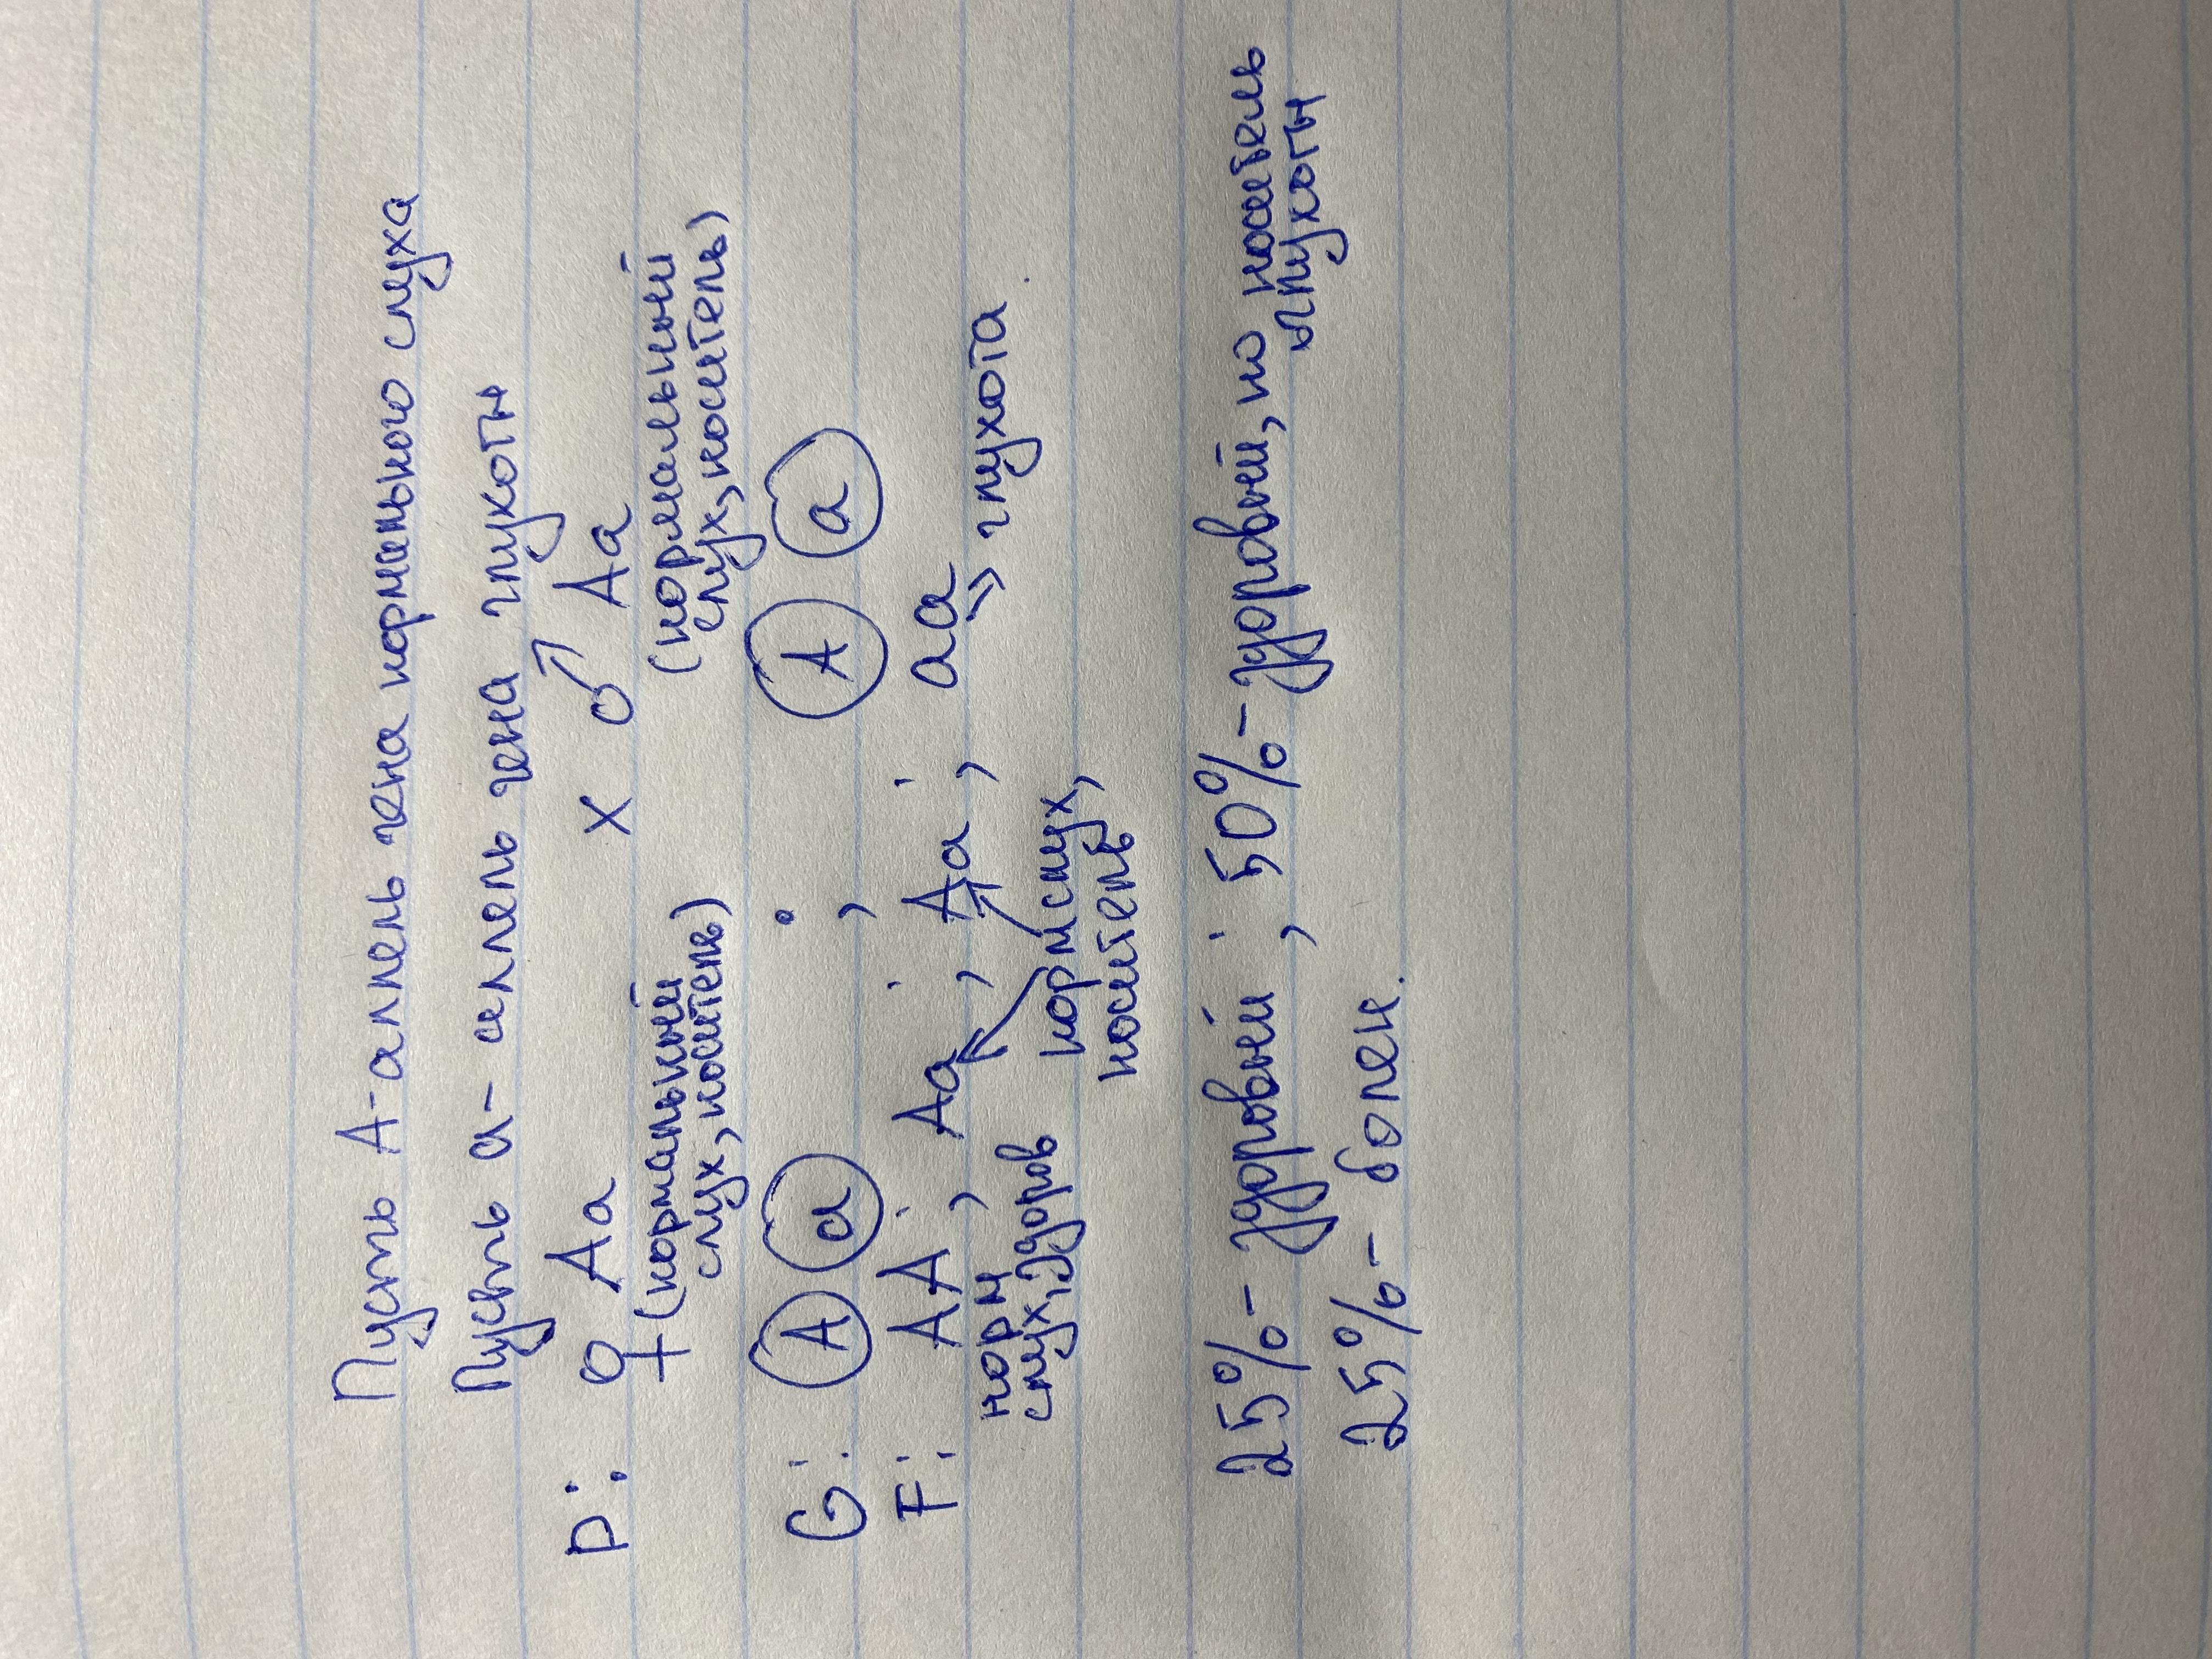 Пусть А - аллель гена нормального слуха
Пусть а - аллель гена глухоты
P: ♀ Aa x ♂ Aa
(нормальный слух, носитель) (нормальный слух, носитель)
G: A a ; A a
F: AA ; Aa ; Aa ; aa
норм слух, здоров
норм слух, носитель
=> глухота
25% - здоровый ; 50% - здоровый, но носитель глухоты
25% - болен.